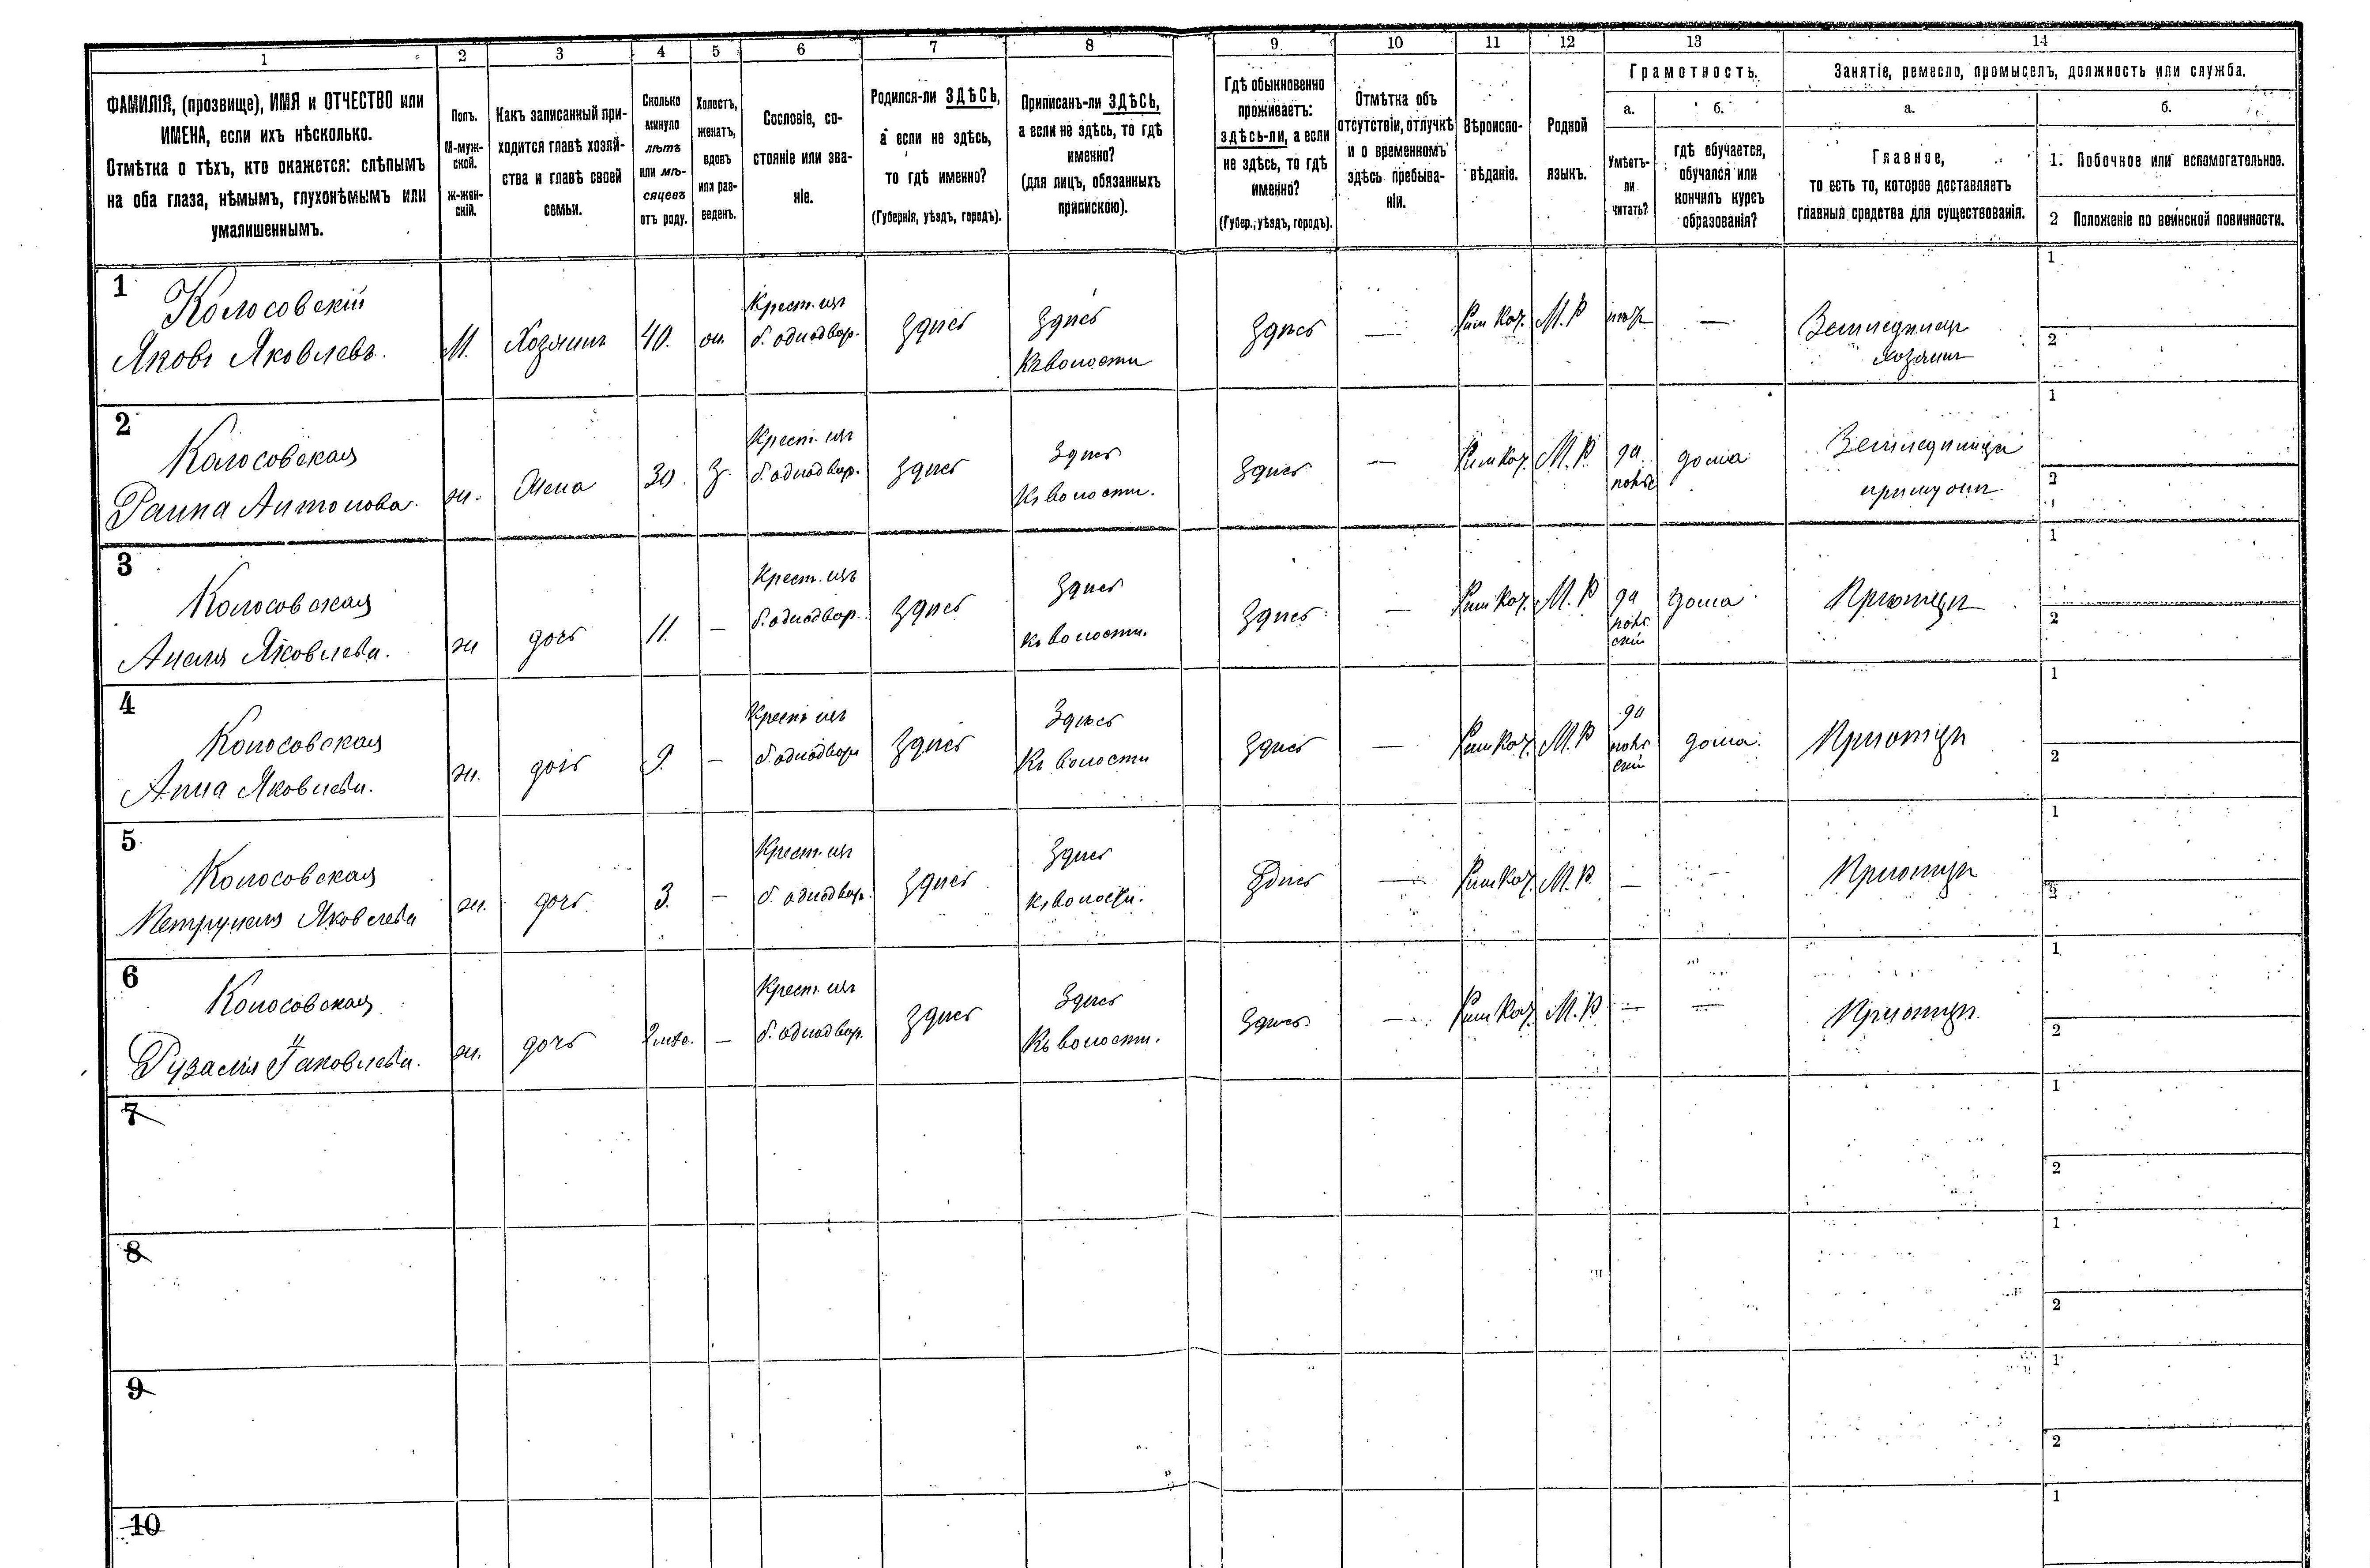 1 2 3 4 5 6 7 8 9 10 11 12 13 14
ФАМИЛІЯ, (прозвище), ИМЯ и ОТЧЕСТВО или
ИМЕНА, если ихъ нѣсколько.
Отмѣтка о тѣхъ, кто окажется: слѣпымъ
на оба глаза, нѣмымъ, глухонѣмымъ или
умалишеннымъ.
Полъ.
М-муж-
ской.
Ж-жен-
скій.
Какъ записанный при-
ходится главѣ хозяй-
ства и главѣ своей
семьи.
Сколько
минуло
лѣтъ
или мѣ-
сяцевъ
отъ роду.
Холостъ,
женатъ,
вдовъ
или раз-
веденъ.
Сословіе, со-
стояніе или зва-
ніе.
Родился-ли ЗДѢСЬ,
а если не здѣсь,
то гдѣ именно?
(Губернія, уѣздъ, городъ).
Приписанъ-ли ЗДѢСЬ,
а если не здѣсь, то гдѣ
именно?
(для лицъ, обязанныхъ
припискою).
Гдѣ обыкновенно
проживаетъ:
здѣсь-ли, а если
не здѣсь, то гдѣ
именно?
(Губер., уѣздъ, городъ).
Отмѣтка объ
отсутствіи, отлучкѣ
и о временномъ
здѣсь пребыва-
ніи.
Вѣроиспо-
вѣданіе.
Родной
языкъ.
Грамотность.
а.
Умѣетъ-
ли
читать?
б.
гдѣ обучается,
обучался или
кончилъ курсъ
образованія?
Занятіе, ремесло, промыселъ, должность или служба.
а.
Главное,
то есть то, которое доставляетъ
главныя средства для существованія.
б.
1. Побочное или вспомогательное.
2 Положеніе по воинской повинности.
1
Колосовскій
Яковъ Яковлевъ.
М.
Хозяинъ
40.
ж.
Крест. изъ
б. однодвор.
Здѣсь
Здѣсь
Къ волости
Здѣсь
—
Рим Кат.
М. Р
нѣтъ
—
Земледѣлец
хозяин
1
2
2
Колосовская
Антонова.
ж.
Жена
30
з.
Крест. изъ
б. однодвор.
Здѣсь
Здѣсь
Къ волости.
Здѣсь
—
Рим Кат.
М. Р.
да
дома
при муж
1
2
3
Колосовская
Анеля Яковлева.
ж
дочь
11.
—
Крест. изъ
б. однодвор.
Здѣсь
Здѣсь
къ волости.
Здѣсь
—
Рим Кат.
М. Р
да
дома
При отцѣ
1
2
4
Колосовская
Анна Яковлева.
ж.
дочь
9.
—
Крест изъ
б. однодвор
Здѣсь
Здѣсь
Къ волости
Здѣсь
—
Рим Кат.
М. Р
да
дома.
При отцѣ
1
2
5
Колосовская
Петрунеля Яковлева
ж.
дочь
3.
—
Крест. изъ
б. однодвор.
Здѣсь
Здѣсь
къ волости.
Здѣсь
—
Рим Кат.
М. Р.
—
При отцѣ
1
2
6
Колосовская
Рузалія Яковлева.
ж.
дочь
2 мѣс.
—
Крест. изъ
б. однодвор.
Здѣсь
Здѣсь
Къ волости.
Здѣсь
—
Рим Кат.
М. Р
—
—
При отцѣ
1
2
7
1
2
8
1
2
9
1
2
10
1